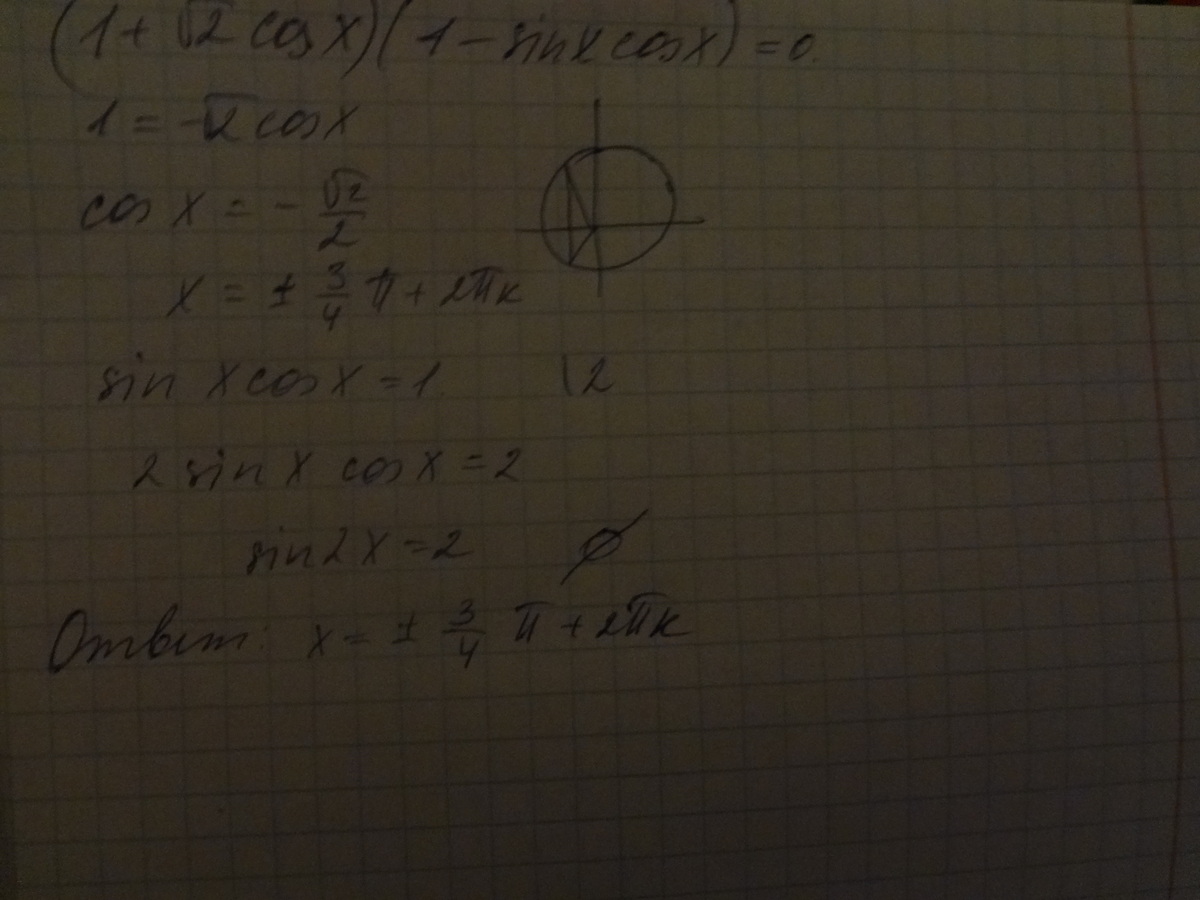 (1+√2 cos x)(1-sin x cos x)=0.
1=-√2 cos x
cos x = - √2/2
x = ± 3/4 π + 2πk
sin x cos x = 1 |2
2 sin x cos x = 2
sin 2x = 2 ∅
Ответ: x = ± 3/4 π + 2πk